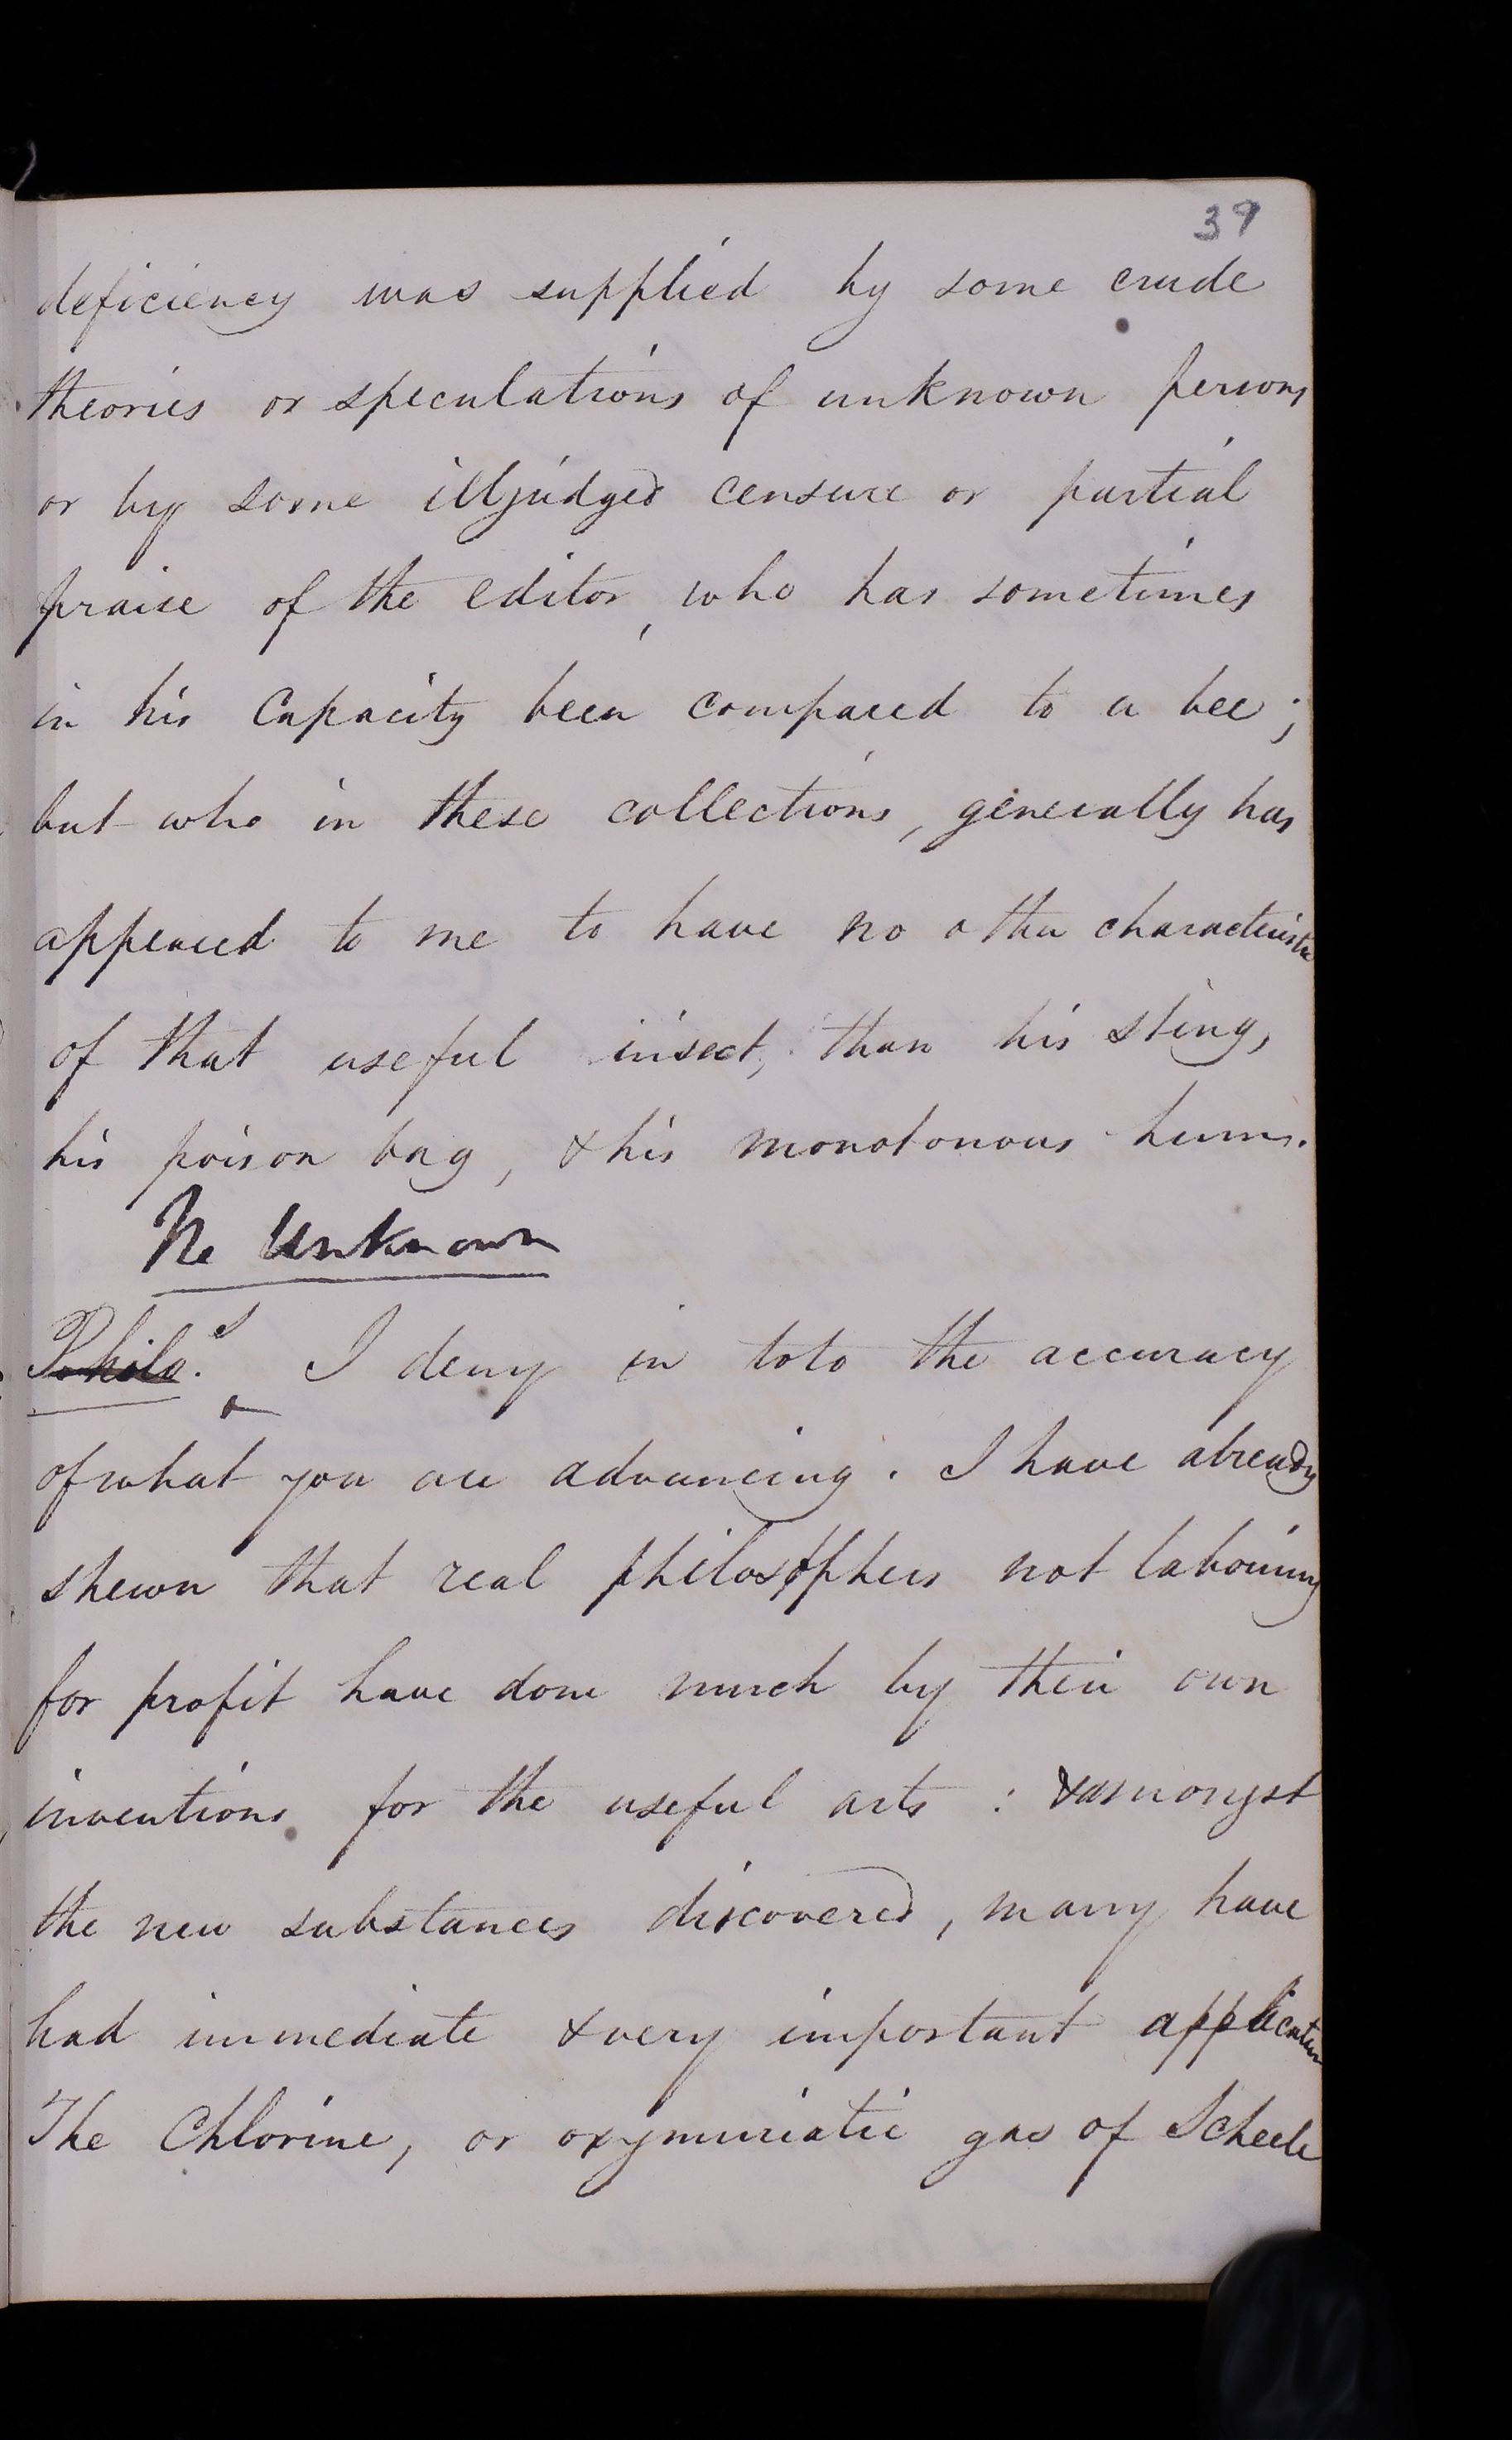 39
deficiency was supplied by some crude
theories or speculations of unknown persons
or by some illjudged censure or partial
praise of the editor, who has sometimes
in his Capacity been compared to a bee;
but who in these collections, generally has
appeared to me to have no other characteristic
of that useful insect, than his sting,
his poison bag, & his monotonous hum.
The Unknown
Philos. I deny in toto the accuracy
of what you are advancing. I have already
shewn that real philosophers not labouring
for profit have done much by their own
inventions for the useful arts: & amongst
the new substances discovered, many have
had immediate & very important application
The Chlorine, or oxymuriatic gas of Scheele